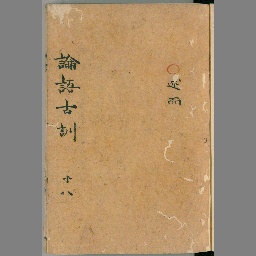 論語古訓
十八
述而